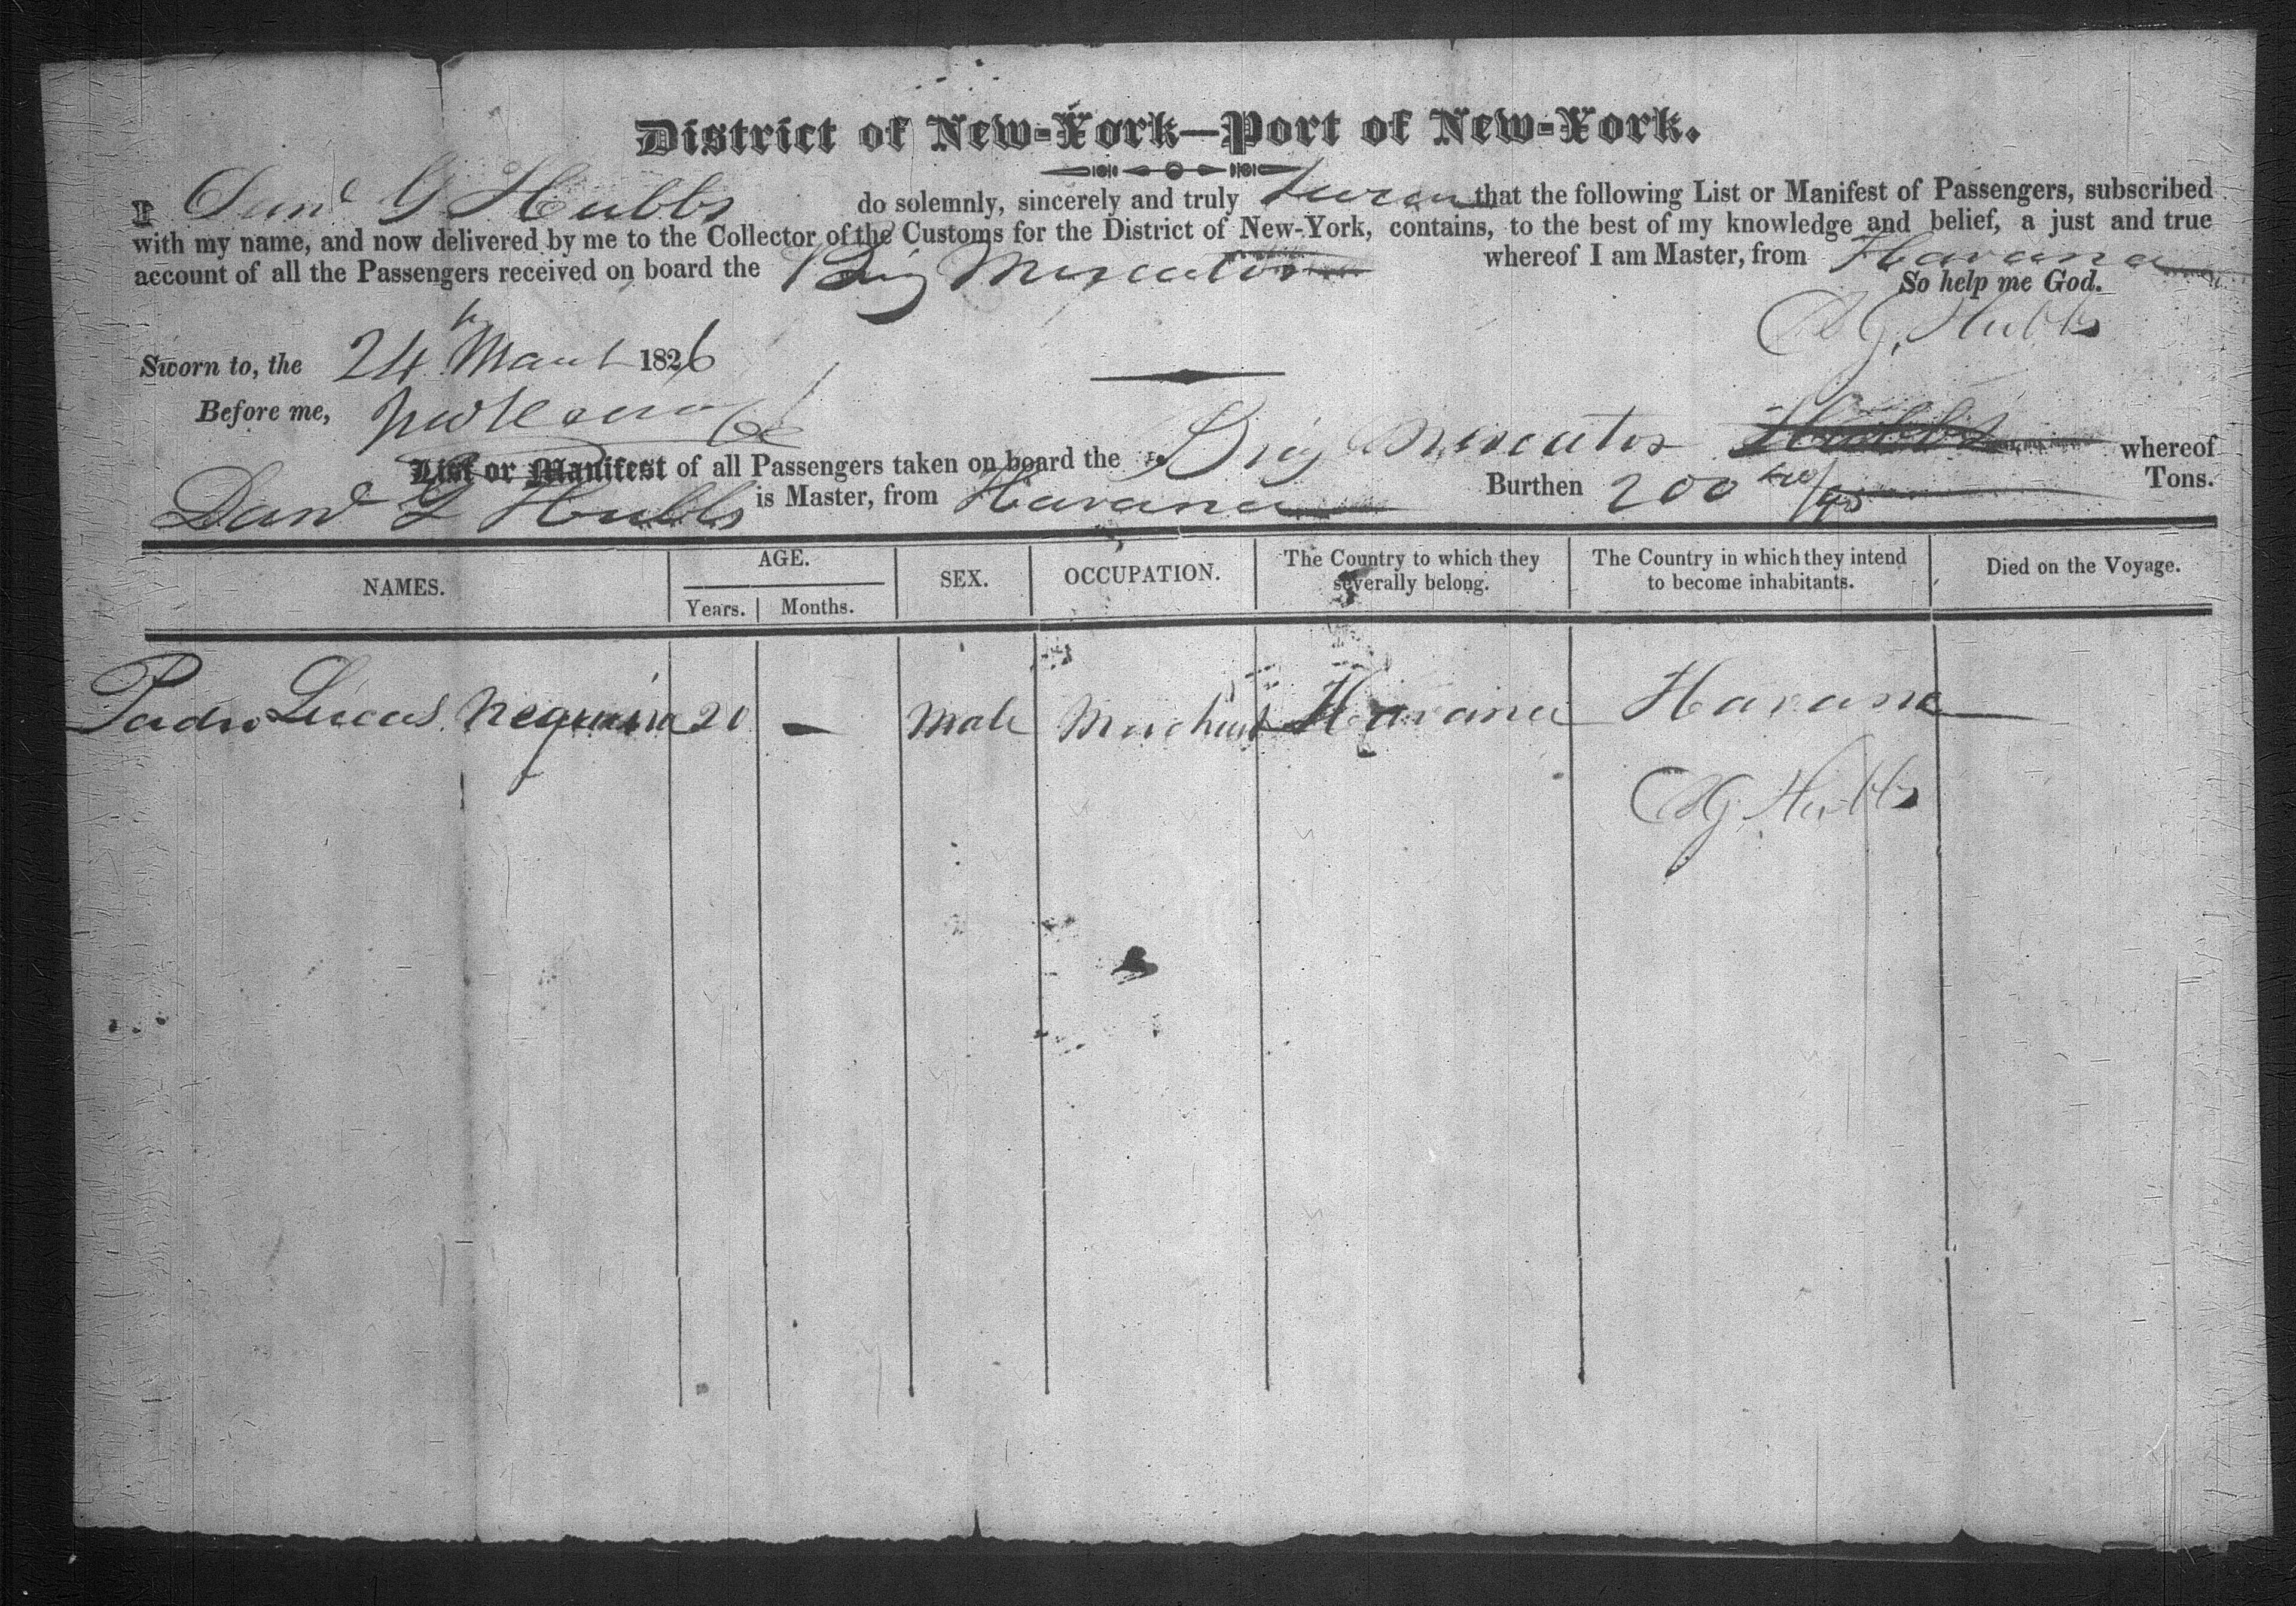 District of New-York—Port of New-York.
I Danl G Hubbs do solemnly, sincerely and truly swear that the following List or Manifest of Passengers, subscribed
with my name, and now delivered by me to the Collector of the Customs for the District of New-York, contains, to the best of my knowledge and belief, a just and true
account of all the Passengers received on board the Brig Mercator whereof I am Master, from Havana
So help me God.
D G. Hubbs
Sworn to, the 24th March 1826
Before me,
List or Manifest of all Passengers taken on board the Brig Mercator Hubbs whereof
Danl G Hubbs is Master, from Havana Burthen 200 /95 Tons.
NAMES. AGE. SEX. OCCUPATION. The Country to which they severally belong. The Country in which they intend to become inhabitants. Died on the Voyage.
Years. Months.
Padro Lucas 20 — Male Merchant Havana Havana
D G. Hubbs